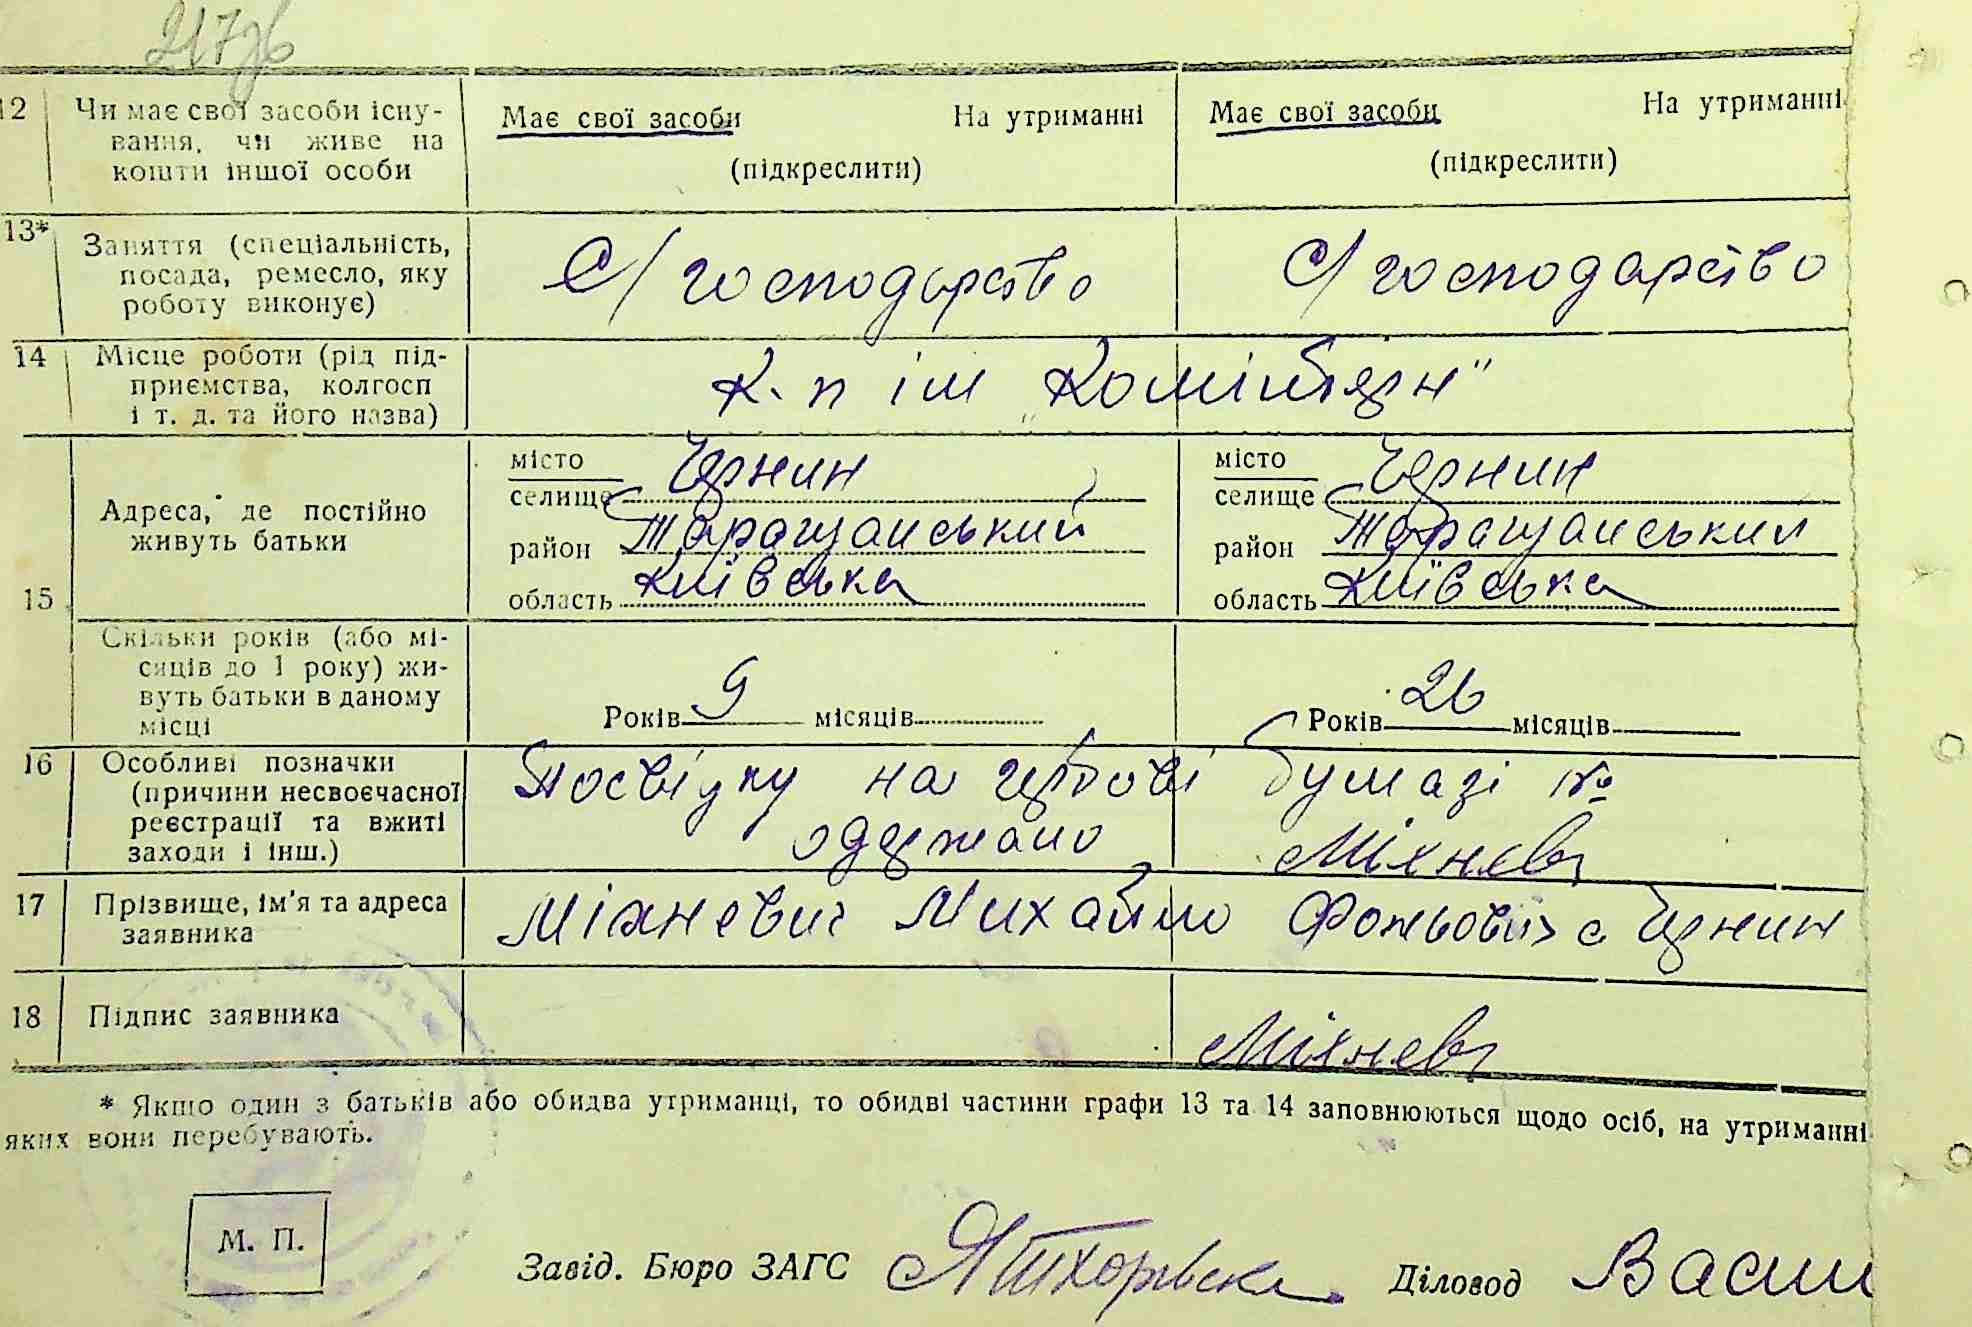 217зв
12 Чи має свої засоби існу-
вання, чи живе на
кошти іншої особи
Має свої засоби На утриманні
(підкреслити)
Має свої засоби На утриманні
(підкреслити)
13* Заняття (спеціальність,
посада, ремесло, яку
роботу виконує)
С/господарство
С/господарство
14 Місце роботи (рід під-
приємства, колгосп
і т. д. та його назва)
К-п ім
15 Адреса, де постійно
живуть батьки
місто
селище Чернин
район Таращанський
область Київська
місто
селище Чернин
район Таращанський
область Київська
Скільки років (або мі-
сяців до 1 року) жи-
вуть батьки в даному
місці
Років 9 місяців
Років 26 місяців
16 Особливі позначки
(причини несвоєчасної
реєстрації та вжиті
заходи і інш.)
Посвідку на гербові бумазі №
одержано Міхнев
17 Прізвище, ім'я та адреса
заявника
Міхневич Михайло с Чернин
18 Підпис заявника
Міхнев
* Якщо один з батьків або обидва утриманці, то обидві частини графи 13 та 14 заповнюються щодо осіб, на утриманні
яких вони перебувають.
М. П.
Завід. Бюро ЗАГС Діловод Васил